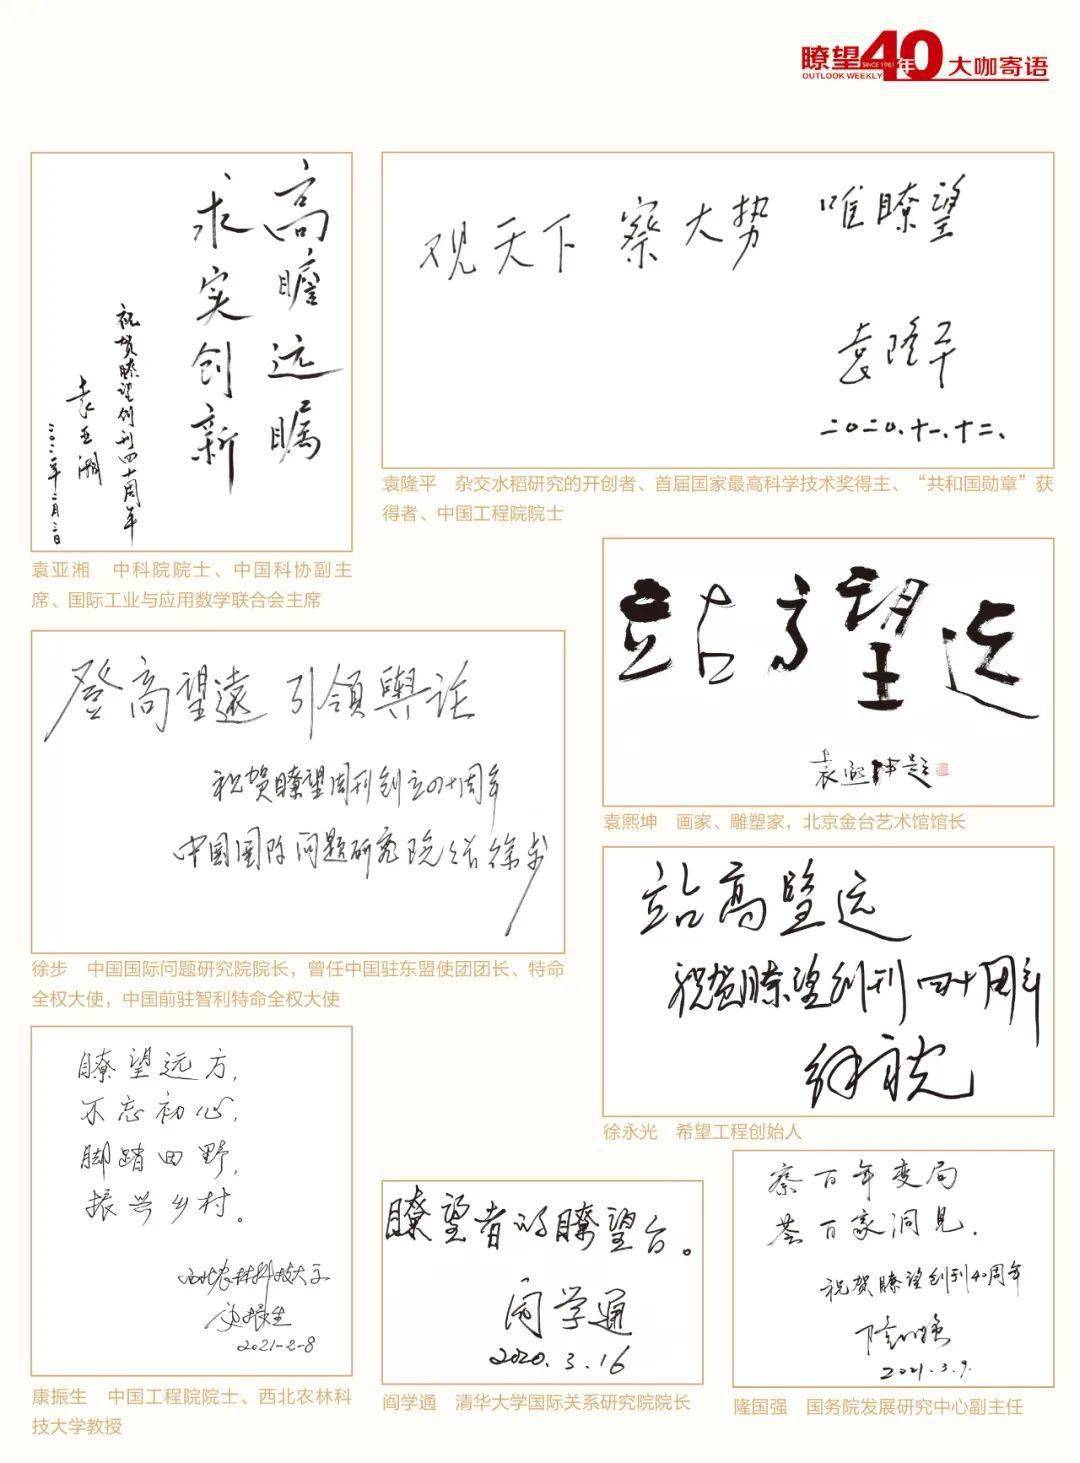 瞭望40年
SINCE 1981
OUTLOOK WEEKLY
大咖寄语
高瞻远瞩
求实创新
祝贺瞭望创刊四十周年
袁亚湘
二〇二一年二月二日
袁亚湘 中科院院士、中国科协副主
席、国际工业与应用数学联合会主席
观天下 察大势 唯瞭望
袁隆平
二〇二〇.十一.十二、
袁隆平 杂交水稻研究的开创者、首届国家最高科学技术奖得主、“共和国勋章”获
得者、中国工程院院士
站高望远
袁熙坤题
袁熙坤 画家、雕塑家，北京金台艺术馆馆长
登高望遠 引领舆论
祝贺瞭望周刊创立四十周年
中国国际问题研究院院长徐步
徐步 中国国际问题研究院院长，曾任中国驻东盟使团团长、特命
全权大使，中国前驻智利特命全权大使
站高望远
祝贺瞭望创刊四十周年
徐永光
徐永光 希望工程创始人
瞭望远方，
不忘初心，
脚踏田野，
振兴乡村。
西北农林科技大学
康振生
2021-2-8
康振生 中国工程院院士、西北农林科
技大学教授
瞭望者的瞭望台。
阎学通
2020.3.16
阎学通 清华大学国际关系研究院院长
察百年变局
荟百家洞见.
祝贺瞭望创刊40周年
隆国强
2021.3.9.
隆国强 国务院发展研究中心副主任